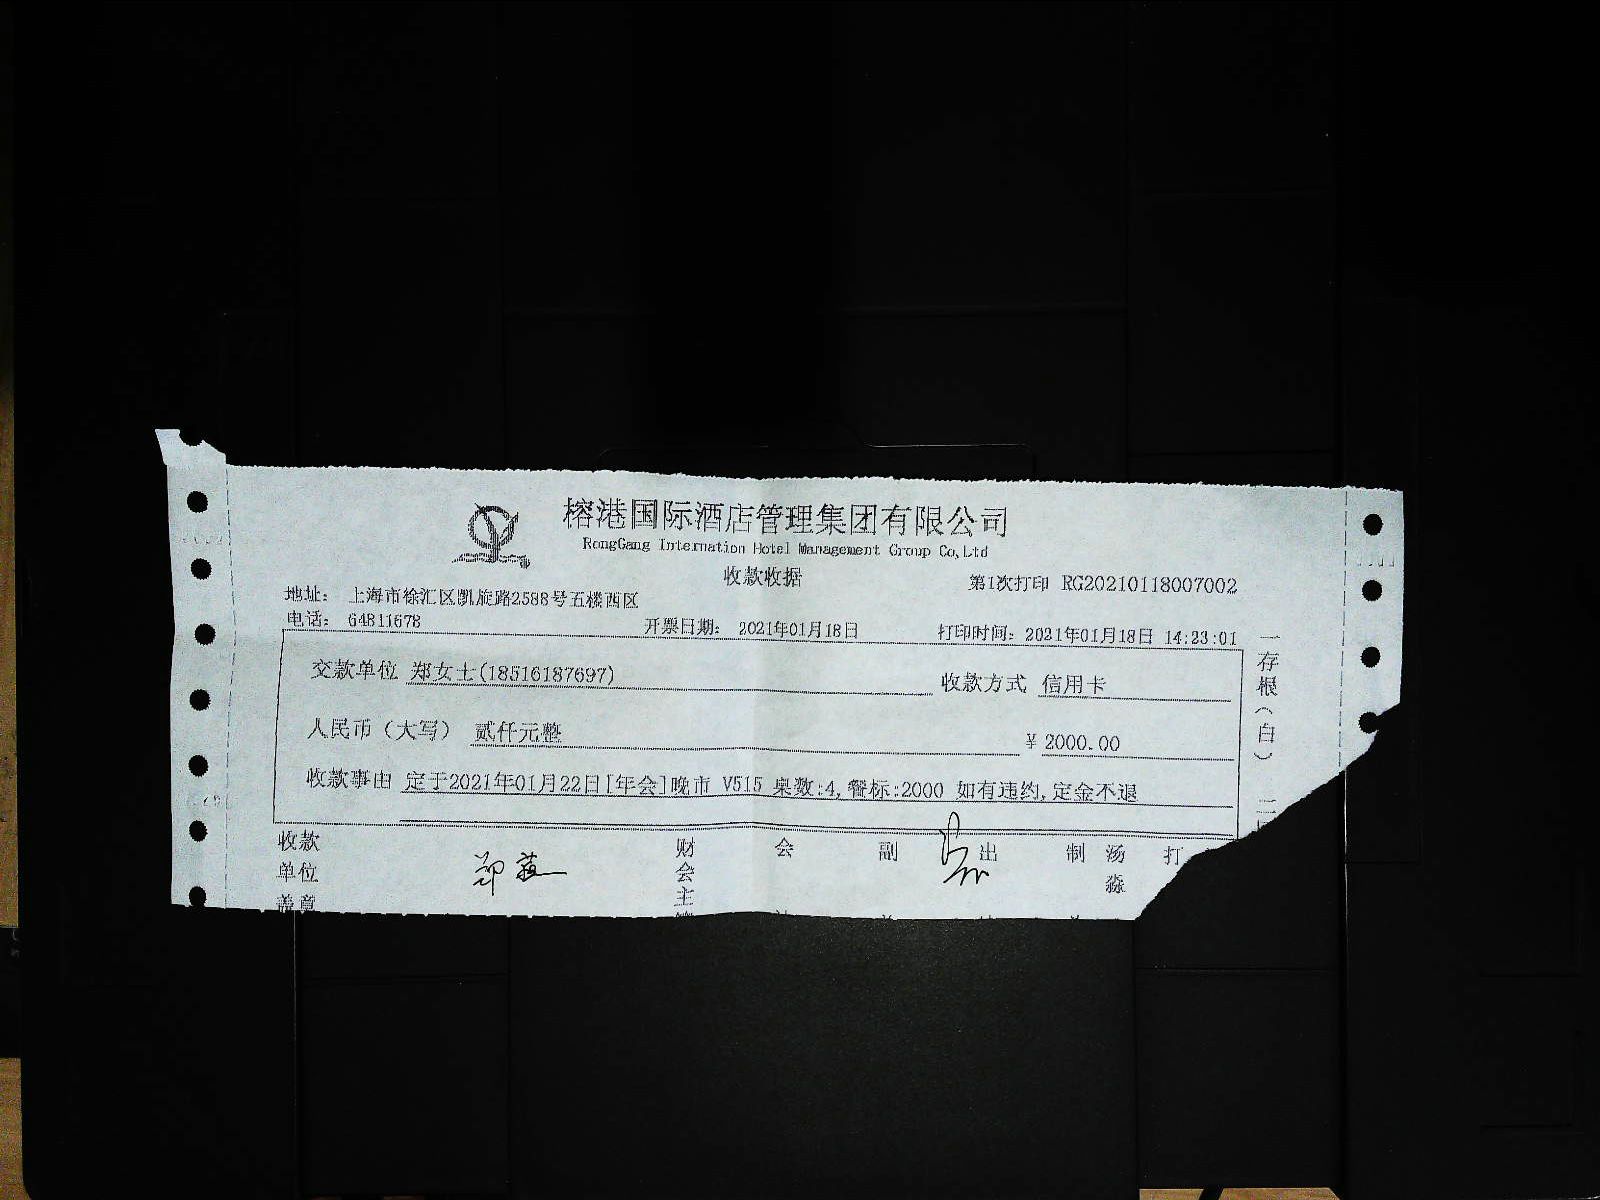 榕港国际酒店管理集团有限公司
RongGang Internation Hotel Management Group Co,Ltd
收款收据
第1次打印 RG20210118007002
地址： 上海市徐汇区凯旋路2588号五楼西区
电话： 64811678
开票日期： 2021年01月18日
打印时间：2021年01月18日 14:23:01
交款单位 郑女士(18516187697)
收款方式 信用卡
人民币（大写） 贰仟元整
¥ 2000.00
收款事由 定于2021年01月22日[年会]晚市 V515 桌数:4,餐标:2000 如有违约,定金不退
一存根（白）
二
收款单位盖章
财会主
会
副
出
制
汤淼
打